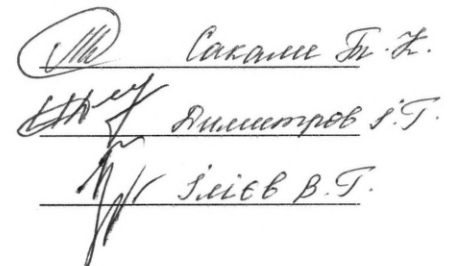 Сакали Т. К.
Димитров І. Г.
Ілієв В. Г.